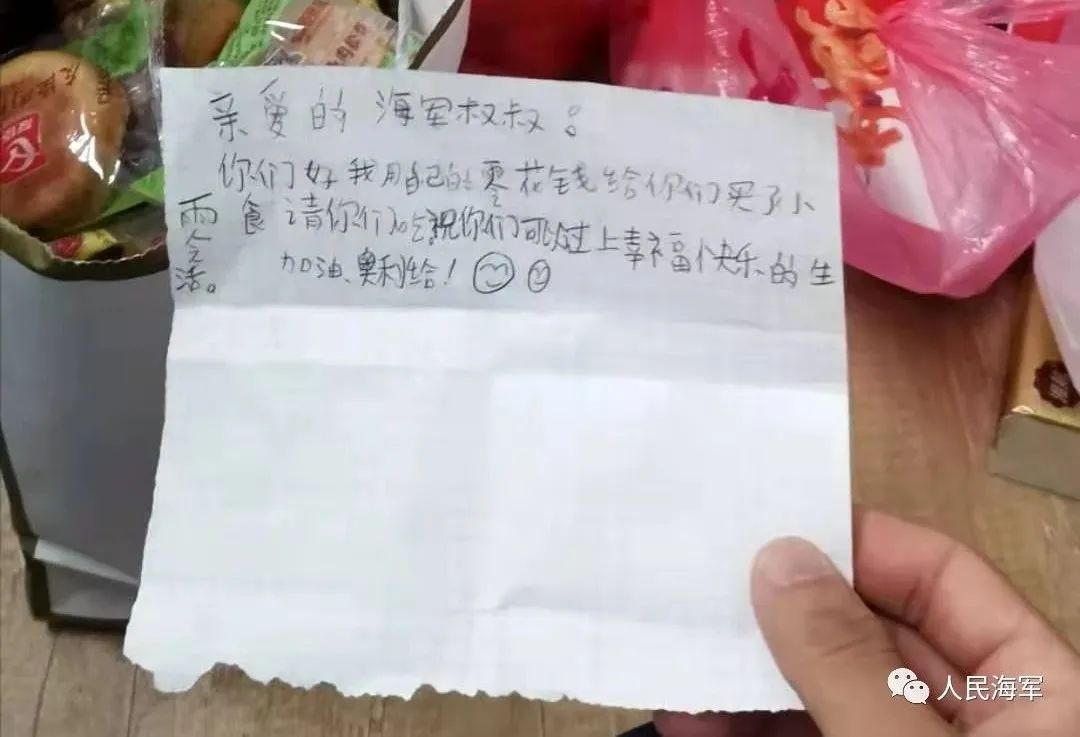 亲爱的海军叔叔:
你们好我用自己的零花钱给你们买了小
食请你们吃祝你们可以过上幸福快乐的生
活。
加油、奥利给!
人民海军